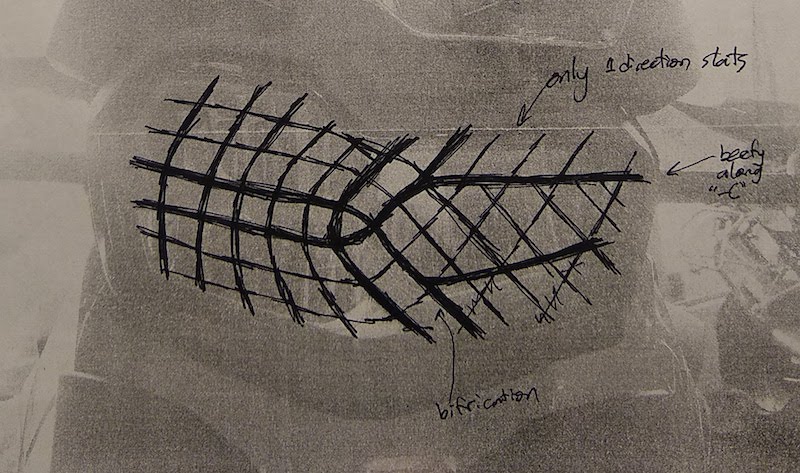 only 1 direction slats
beefy
along
"-C"
bifrication